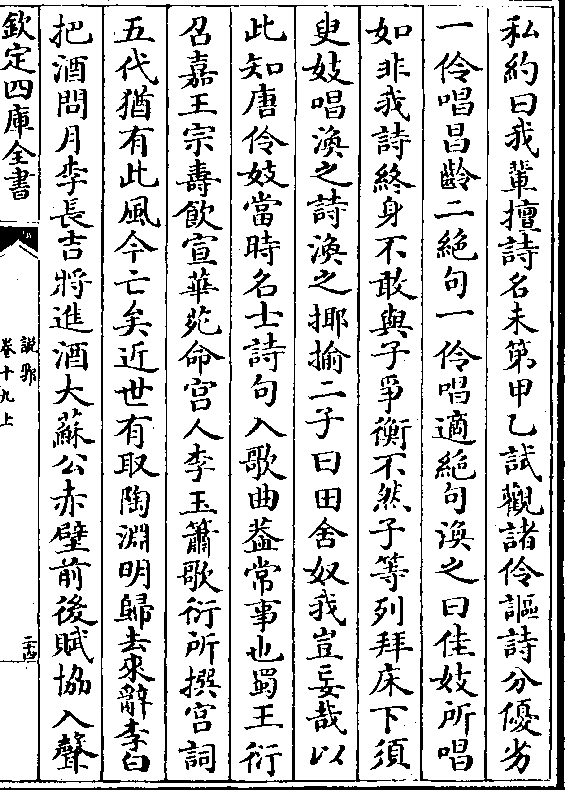 私約曰我輩擅詩名未第甲乙試觀諸伶謳詩分優劣
一伶唱昌齡二絶句一伶唱適絶句渙之曰佳妓所唱
如非我詩終身不敢與子爭衡不然子等列拜床下須
臾妓唱渙之詩渙之揶揄二子曰田舍奴我豈妄哉以
此知唐伶妓當時名士詩句入歌曲葢常事也蜀王衍
召嘉王宗壽飲宣華苑命宫人李玉簫歌衍所撰宫詞
五代猶有此風今亡矣近世有取陶淵明歸去來辭李白
把酒問月李長吉將進酒大蘇公赤壁前後賦協入聲
欽定四庫全書
說郛
卷十九上
二十四